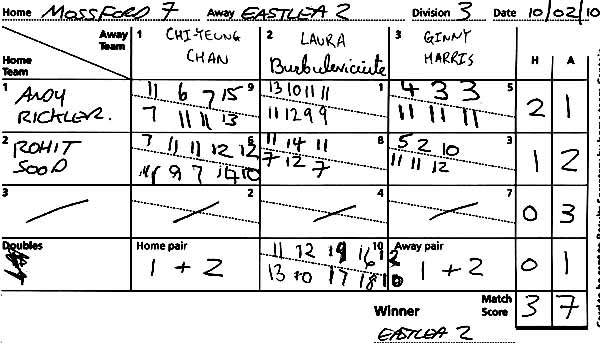 Home MOSSFORD 7 Away EASTLEA 2 Division 3 Date 10/02/10
Away Team 1 CHI-YEUNG CHAN 2 LAURA Burbuleviciute 3 GINNY HARRIS H A
Home Team
1 ANDY RICKLER. 11 6 7 15 9 13 10 11 11 1 4 3 3 5 2 1
7 11 11 13 11 12 9 9 11 11 11
2 ROHIT SOOD 7 11 11 12 12 6 11 14 11 8 5 2 10 3 1 2
11 9 7 14 10 7 12 7 11 11 12
3 2 4 7 0 3
Doubles Home pair 11 12 19 16 12 10 Away pair 0 1
1 + 2 13 10 17 18 10 1 + 2
Winner Match Score 3 7
EASTLEA 2